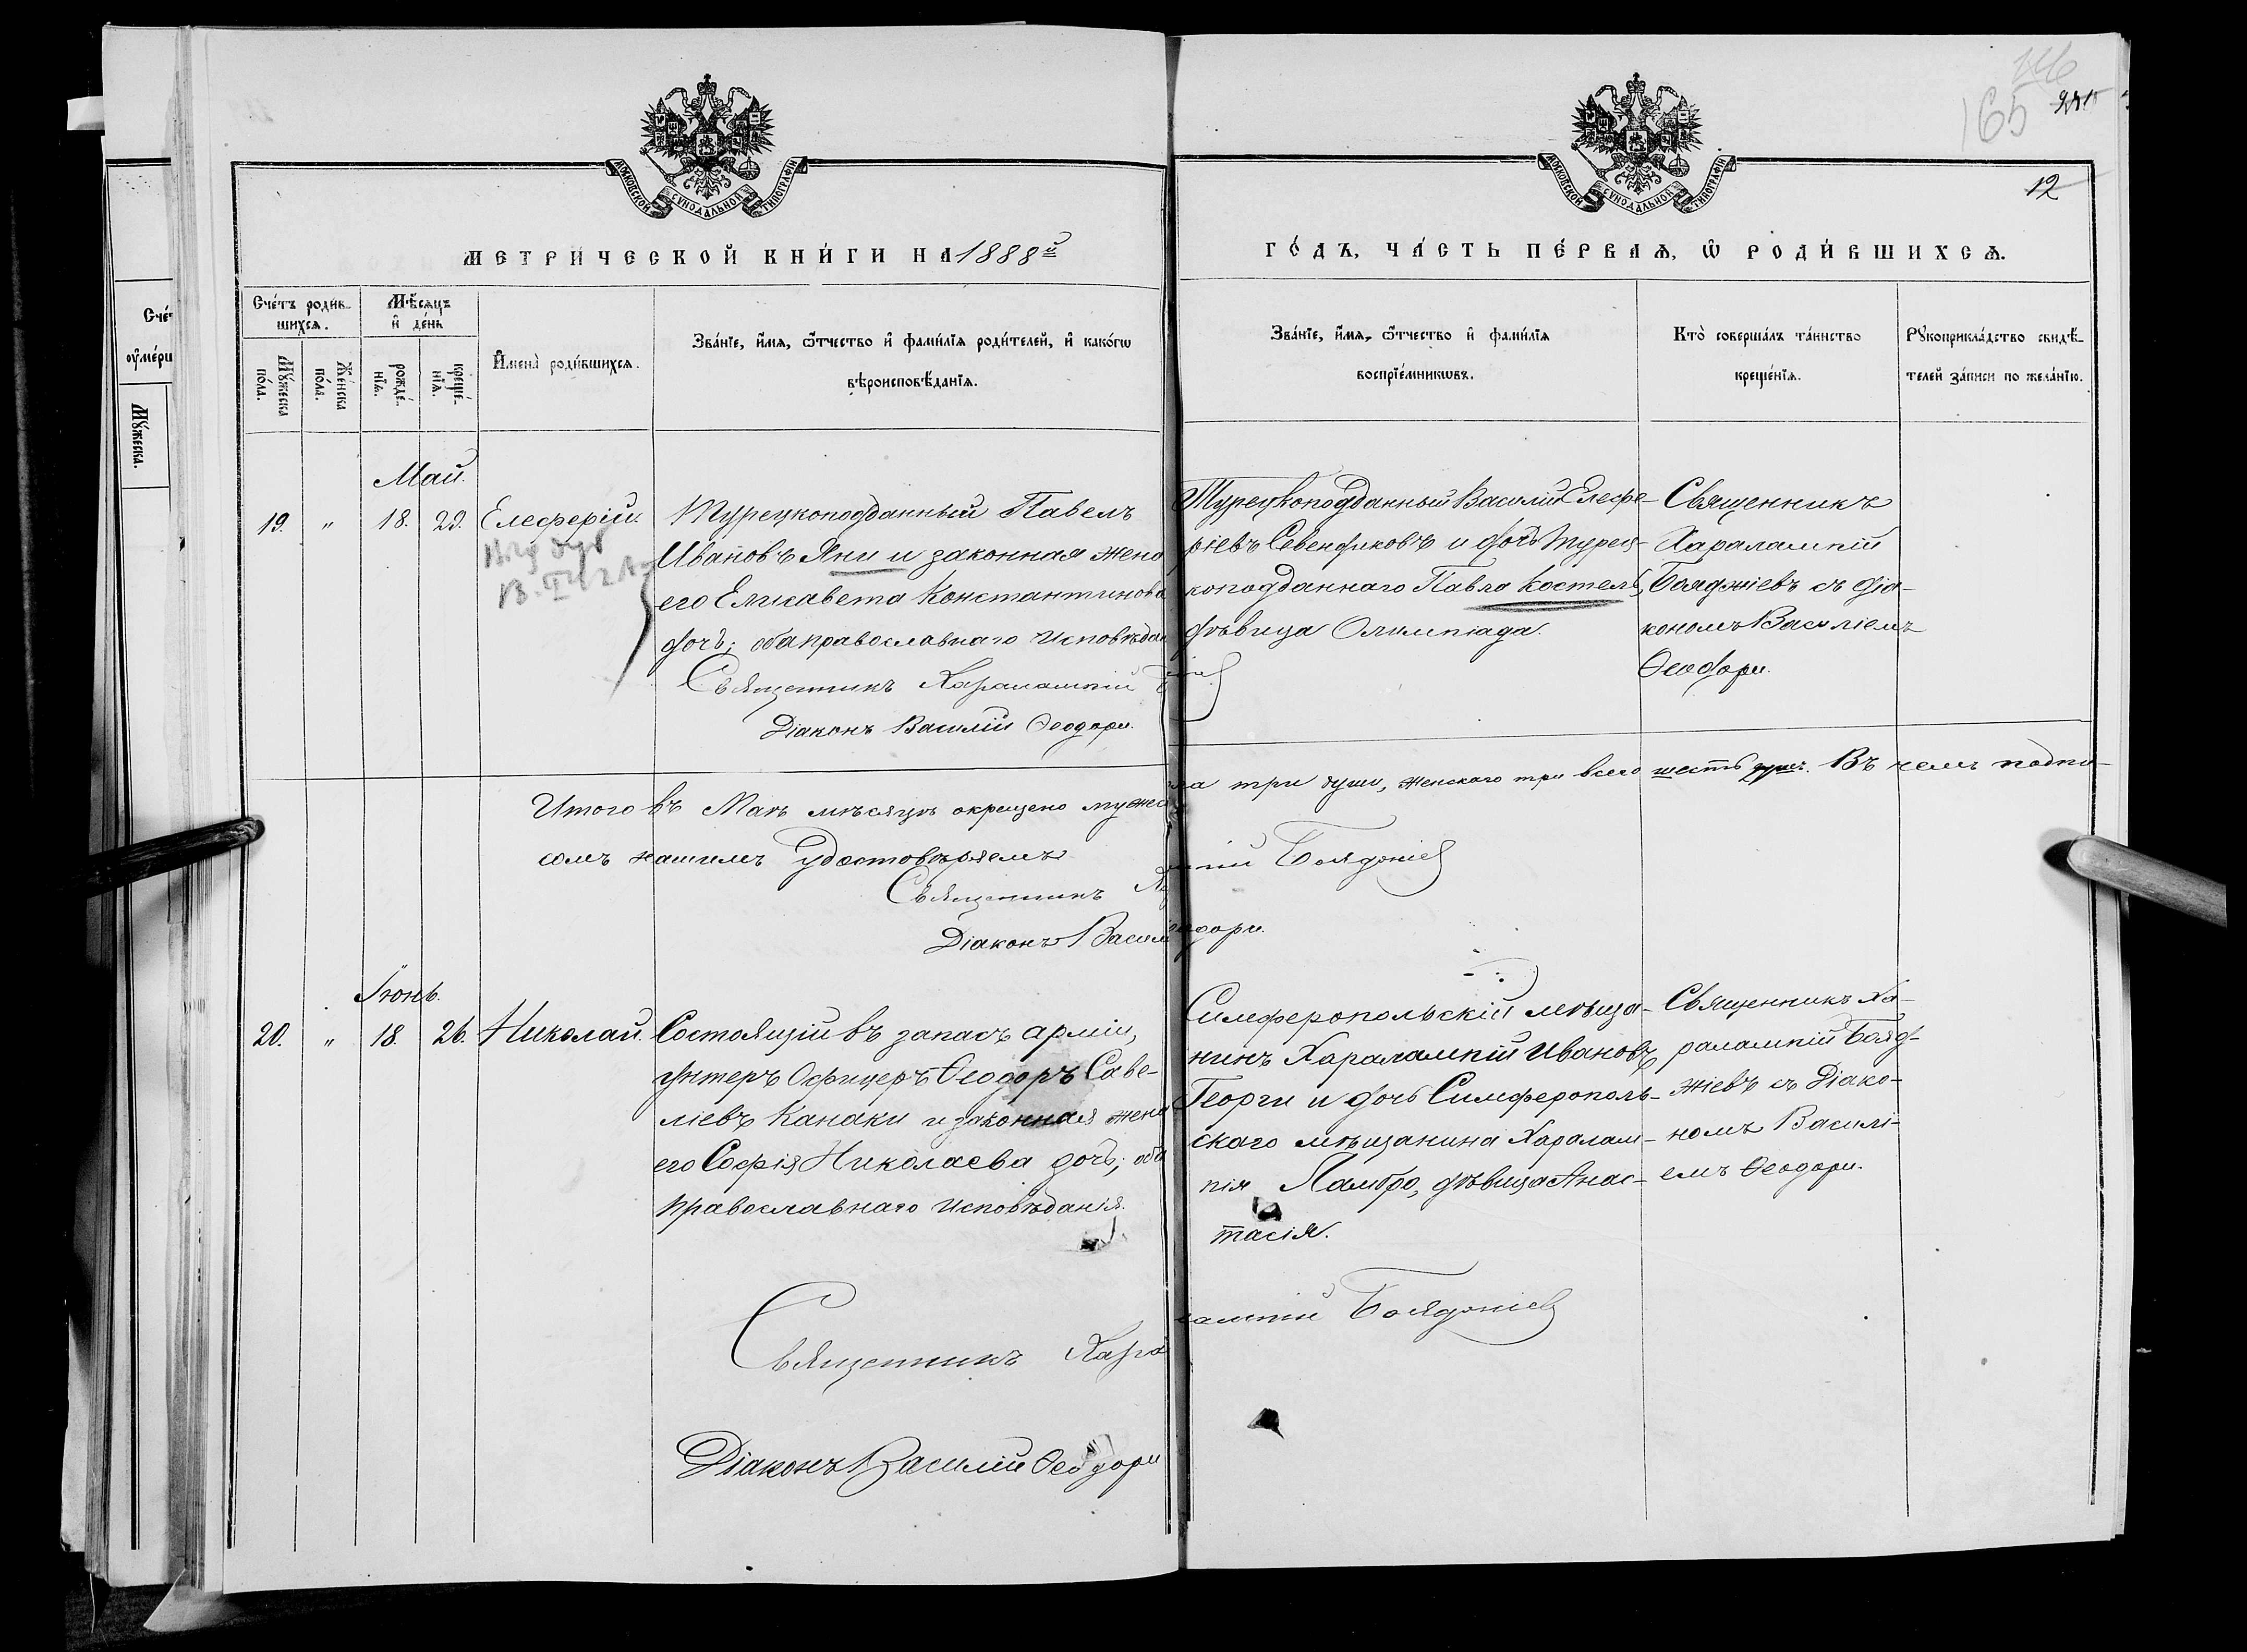 165
12
МОСКОВСКОЙ СѴНОДАЛЬНОЙ ТИПОГРАФІИ
МОСКОВСКОЙ СѴНОДАЛЬНОЙ ТИПОГРАФІИ
МЕТРИ́ЧЕСКОЙ КНИ́ГИ НА 1888й
ГО́ДЪ, ЧА́СТЬ ПЕ́РВАѦ, Ѡ҆ РОДИ́ВШИХСѦ.
Сче́тъ роди́в-
шихсѧ.
Мꙋ́жеска по́ла.
Же́нска по́ла.
Мѣ́сѧцъ
и҆ де́нь
рожде́-
нїѧ.
креще́-
нїѧ.
И҆мена̀ роди́вшихсѧ.
Зва́нїе, и҆́мѧ, ѻ҆́тчество и҆ фами́лїѧ роди́телей, и҆ како́гѡ
вѣроисповѣ́данїѧ.
Зва́нїе, и҆́мѧ, ѻ҆́тчество и҆ фами́лїѧ
воспрїе́мникѡвъ.
Кто̀ соверша́лъ та́инство
креще́нїѧ.
Рꙋкоприкла́дство свидѣ́-
телей за́писи по жела́нїю.
Мꙋ́жеска.
Май.
19. " 18. 29. Елеферій.
Турецкоподданный Павелъ
Ивановъ Яни и законная жена
его Елисавета Константинова
дочь; оба православнаго исповѣдан
Священникъ Харалампій
Діаконъ Василій Ѳеодори.
Турецкоподданный Василій Елефе-
ріевъ Севендиковъ и дочь турец-
коподданнаго Павла Костель,
дѣвица Олимпіада.
Священникъ
Харалампій
Бояджіевъ съ діа-
кономъ Василіемъ
Ѳеодори.
Итого въ Маѣ мѣсяцѣ окрещено мужеска три души, женскаго три всего шесть душъ. Въ чемъ подпи-
сомъ нашимъ удостовѣряемъ
Священникъ Харалампій Бояджіев
Діаконъ Василій Ѳеодори.
Іюнь.
20. " 18. 26. Николай.
Состоящій въ запасѣ арміи,
унтеръ Офицеръ Ѳеодоръ Саве-
ліевъ Канаки и законная жена
его Софія Николаева дочь; оба
православнаго исповѣданія.
Симферопольскій мѣща-
нинъ Харалампій Ивановъ
Георги и дочь Симферополь-
скаго мѣщанина Харалам-
пія Ламбро, дѣвица Анас-
тасія.
Священникъ Ха-
ралампій Бояд-
жіевъ съ Діако-
номъ Василі-
емъ Ѳеодори.
Священникъ Харалампій Бояджіев
Діаконъ Василій Ѳеодори